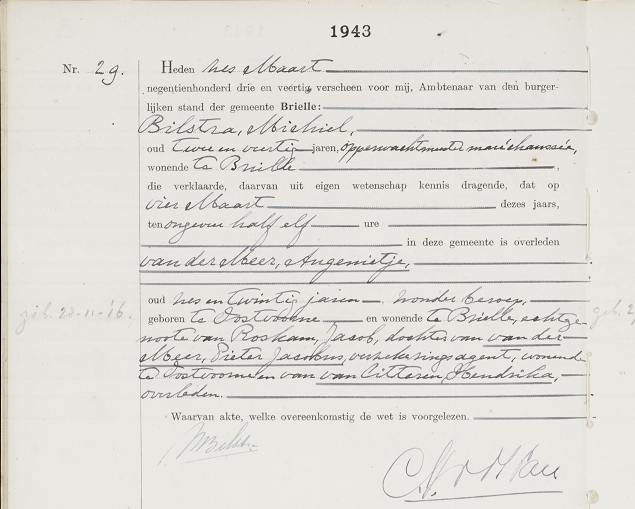 1943
Nr. 29. Heden zes Maart
negentienhonderd drie en veertig verscheen voor mij, Ambtenaar van den burger-
lijken stand der gemeente Brielle:
Bilstra, Michiel,
oud twee en veertig jaren, opperwachtmeester maréchaussée,
wonende te Brielle
die verklaarde, daarvan uit eigen wetenschap kennis dragende, dat op
vier Maart dezes jaars,
ten ongeveer half elf ure
in deze gemeente is overleden
van der Meer, Angenietje,
oud zes en twintig jaren zonder beroep,
geb. 22-11-'16.
geboren te Oostvoorne en wonende te Brielle, echtge-
noote van Roskam, Jacob, dochter van van der
Meer, Pieter Jacobus, verzekeringsagent, wonende
te Oostvoorne en van van Citteren, Hendrika,
overleden.
Waarvan akte, welke overeenkomstig de wet is voorgelezen.
MBilstra